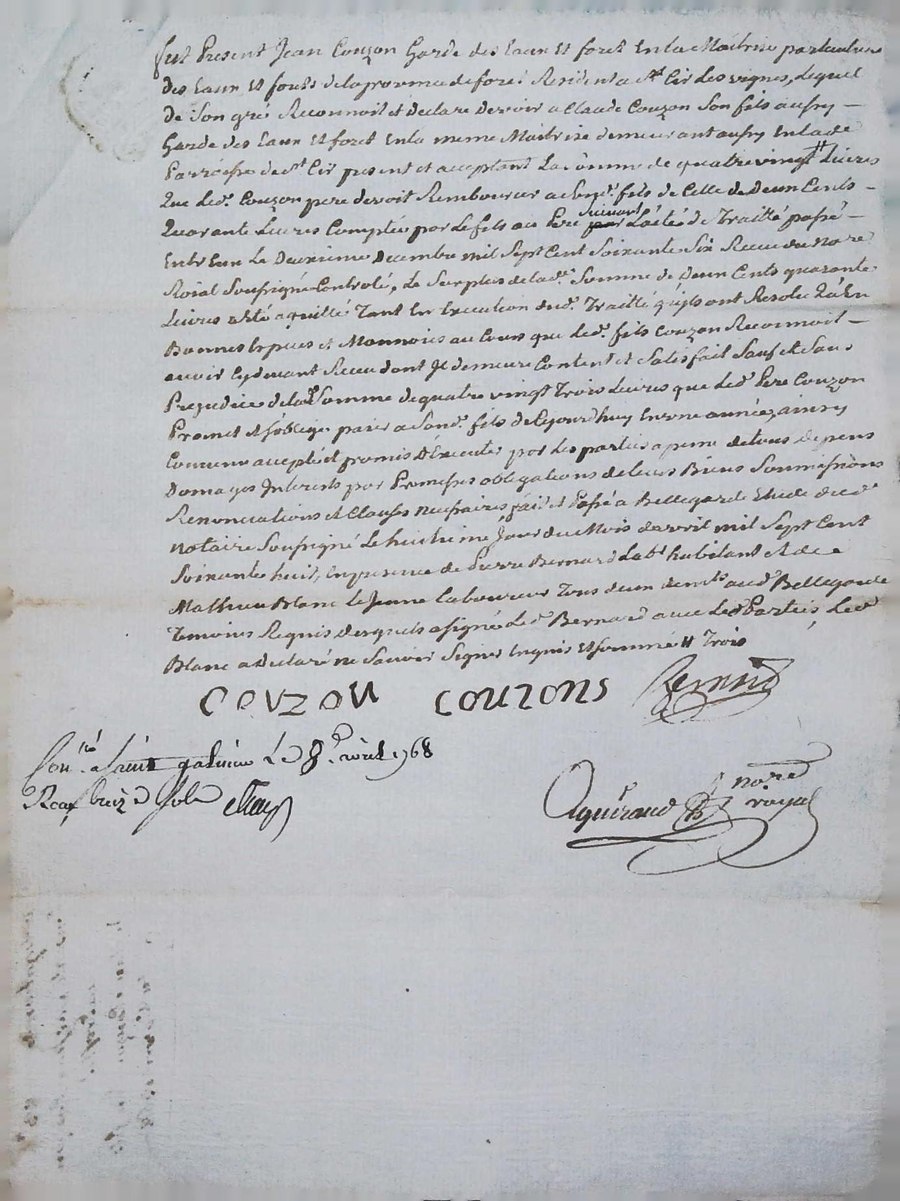 fut Present Jean Couzon Garde des Eaux et foret En la Maitrise particuliere
des Eaux et forets de la province de forez Residant a St Cir Les vignes, Lequel
de Son gré Reconnoit et declare devoir a Claude Couzon Son fils aussy -
Garde des Eaux et foret En la meme Maitrise demeurant aussy En lade
Parroisse de St Cir present et acceptant La Somme de quatre vingt Livres
Que Led. Couzon pere devoit Rembourcer a Sond. fils de Celle de Deux Cents -
Quarante Livres Comptée par Le fils au Pere suivant L'acte de Traitté passé -
Entre Eux Le Deuxieme Decembre mil Sept Cent Soixante Six Receu du Nore
Roial Soussigné Controlé, Le Surplus de lad. Somme de Deux Cents quarante
Livres a été aquitté Tant En Execution dud. Traitté qu'ils ont Resolu Qu'En
Bonnes Especes et Monnoies au Cours que Led. fils Couzon Reconnoit -
avoir Cydevant Receu dont Il demeure Content et Satisfait Sauf et Sans
Prejudice de lad. Somme de quatre vingt Trois Livres que Led. Pere Couzon
Promet et s'oblige paier a Sond. fils de Cejourdhuy En une année, ainsy
Convenu accepté et promis d'Executer par Les parties a peine de tous depens
Domages Interets par Promesses obligations de leurs Biens Soumissions
Renonciations et Clauses necessaires fait et Passé a Bellegarde Etude dud.
notaire Soussigné Le huitieme Jour du Mois d'avril mil Sept Cent
Soixante huit, En presence de Pierre Bernard Lab. habitant et de
Mathieu Blanc Le Jeune Laboureur Tous deux aud. Bellegarde
Temoins Requis desquels a signé Led. Bernard avec Led. Parties, Led.
Blanc a declaré ne Savoir Signer Enquis et sommé Trois
COUZON COUZONS Bernard
Con.lé a Saint galmier Le 8e avril 1768
Reçu treize sols
nore
royal